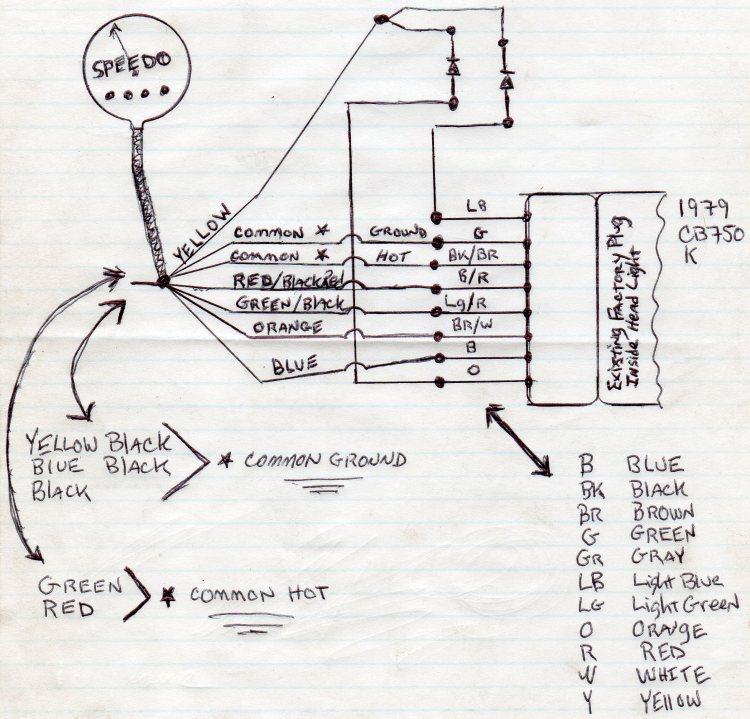 SPEEDO
YELLOW
LB
COMMON * GROUND G
COMMON * HOT BK/BR
RED/BLACK B/R
GREEN/BLACK Lg/R
ORANGE BR/W
BLUE B
O
Existing Factory Plug
Inside Head Light
1979
CB750
K
YELLOW BLACK
BLUE BLACK
BLACK
* COMMON GROUND
GREEN
RED
* COMMON HOT
B BLUE
BK BLACK
BR BROWN
G GREEN
GR GRAY
LB Light Blue
LG Light Green
O ORANGE
R RED
W WHITE
Y YEllOW